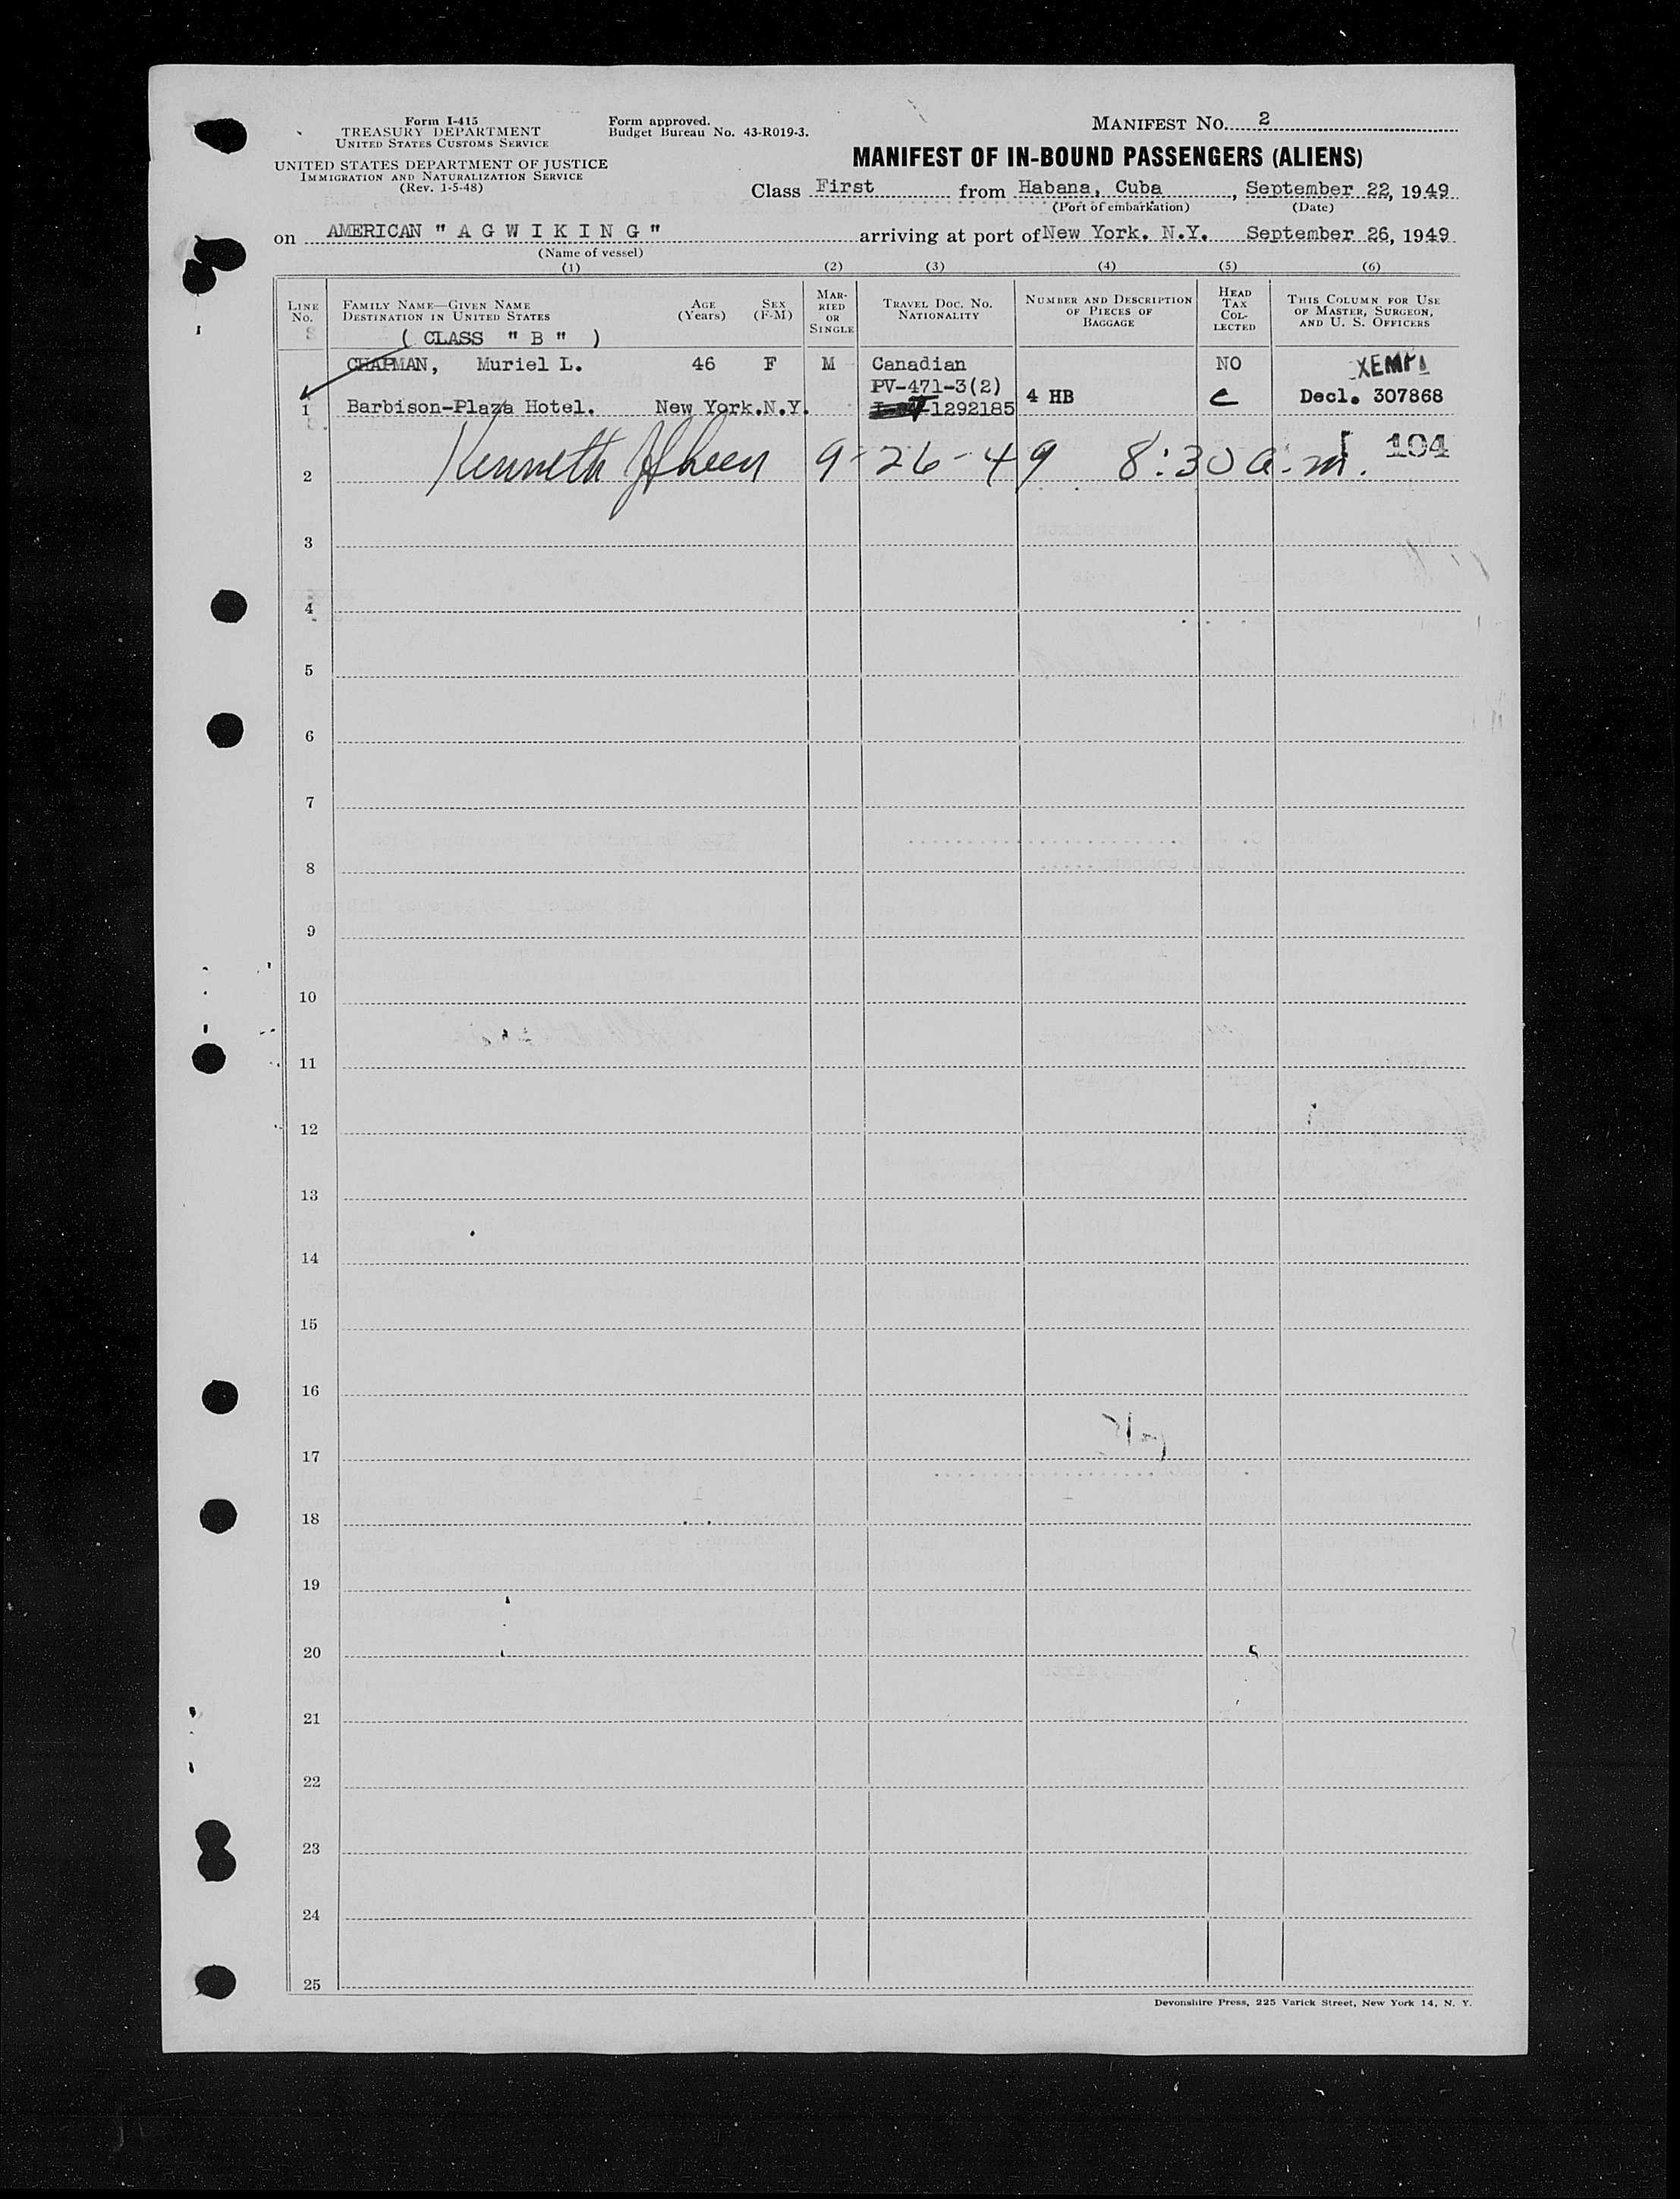 Form I-415
TREASURY DEPARTMENT
UNITED STATES CUSTOMS SERVICE
UNITED STATES DEPARTMENT OF JUSTICE
IMMIGRATION AND NATURALIZATION SERVICE
(Rev. 1-5-48)
Form approved.
Budget Bureau No. 43-R019-3.
MANIFEST No. 2
MANIFEST OF IN-BOUND PASSENGERS (ALIENS)
Class First from Habana, Cuba, September 22, 1949
(Port of embarkation) (Date)
on AMERICAN " A G W I K I N G " arriving at port of New York. N.Y. September 26, 1949
(Name of vessel)
(1) (2) (3) (4) (5) (6)
LINE No.
FAMILY NAME—GIVEN NAME
DESTINATION IN UNITED STATES
AGE (Years)
SEX (F-M)
MARRIED OR SINGLE
TRAVEL DOC. NO.
NATIONALITY
NUMBER AND DESCRIPTION OF PIECES OF BAGGAGE
HEAD TAX COLLECTED
THIS COLUMN FOR USE OF MASTER, SURGEON, AND U. S. OFFICERS
( CLASS " B " )
CHAPMAN, Muriel L. 46 F M Canadian NO XEMPT
PV-471-3(2)
1 Barbison-Plaza Hotel. New York.N.Y. 1292185 4 HB c Decl. 307868
104
2 Kenneth 9-26-49 8:30 a.m.
3
4
5
6
7
8
9
10
11
12
13
14
15
16
17
18
19
20
21
22
23
24
25
Devonshire Press, 225 Varick Street, New York 14, N. Y.